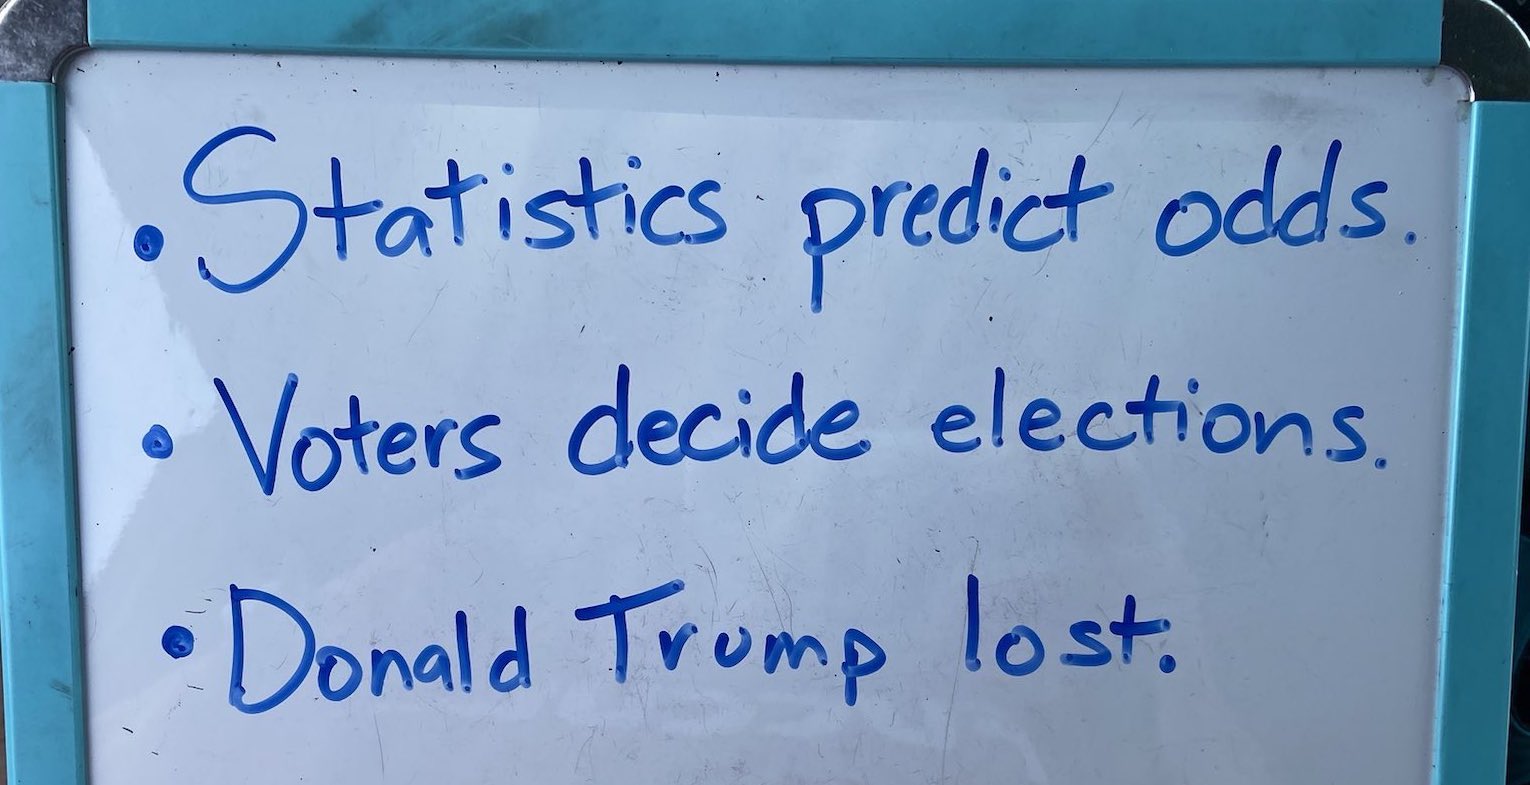 • Statistics predict odds.
• Voters decide elections.
• Donald Trump lost.